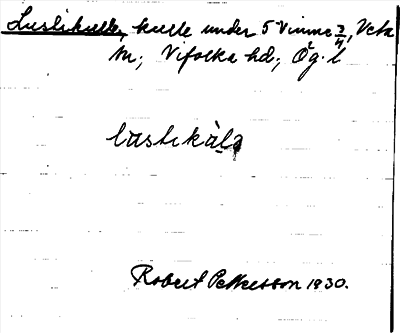 Lustikulle, kulle under 5 Vinne 3/4, Veta
sn; Vifolka hd; Ög. l
lustikùlə
Robert Pettersson 1930.